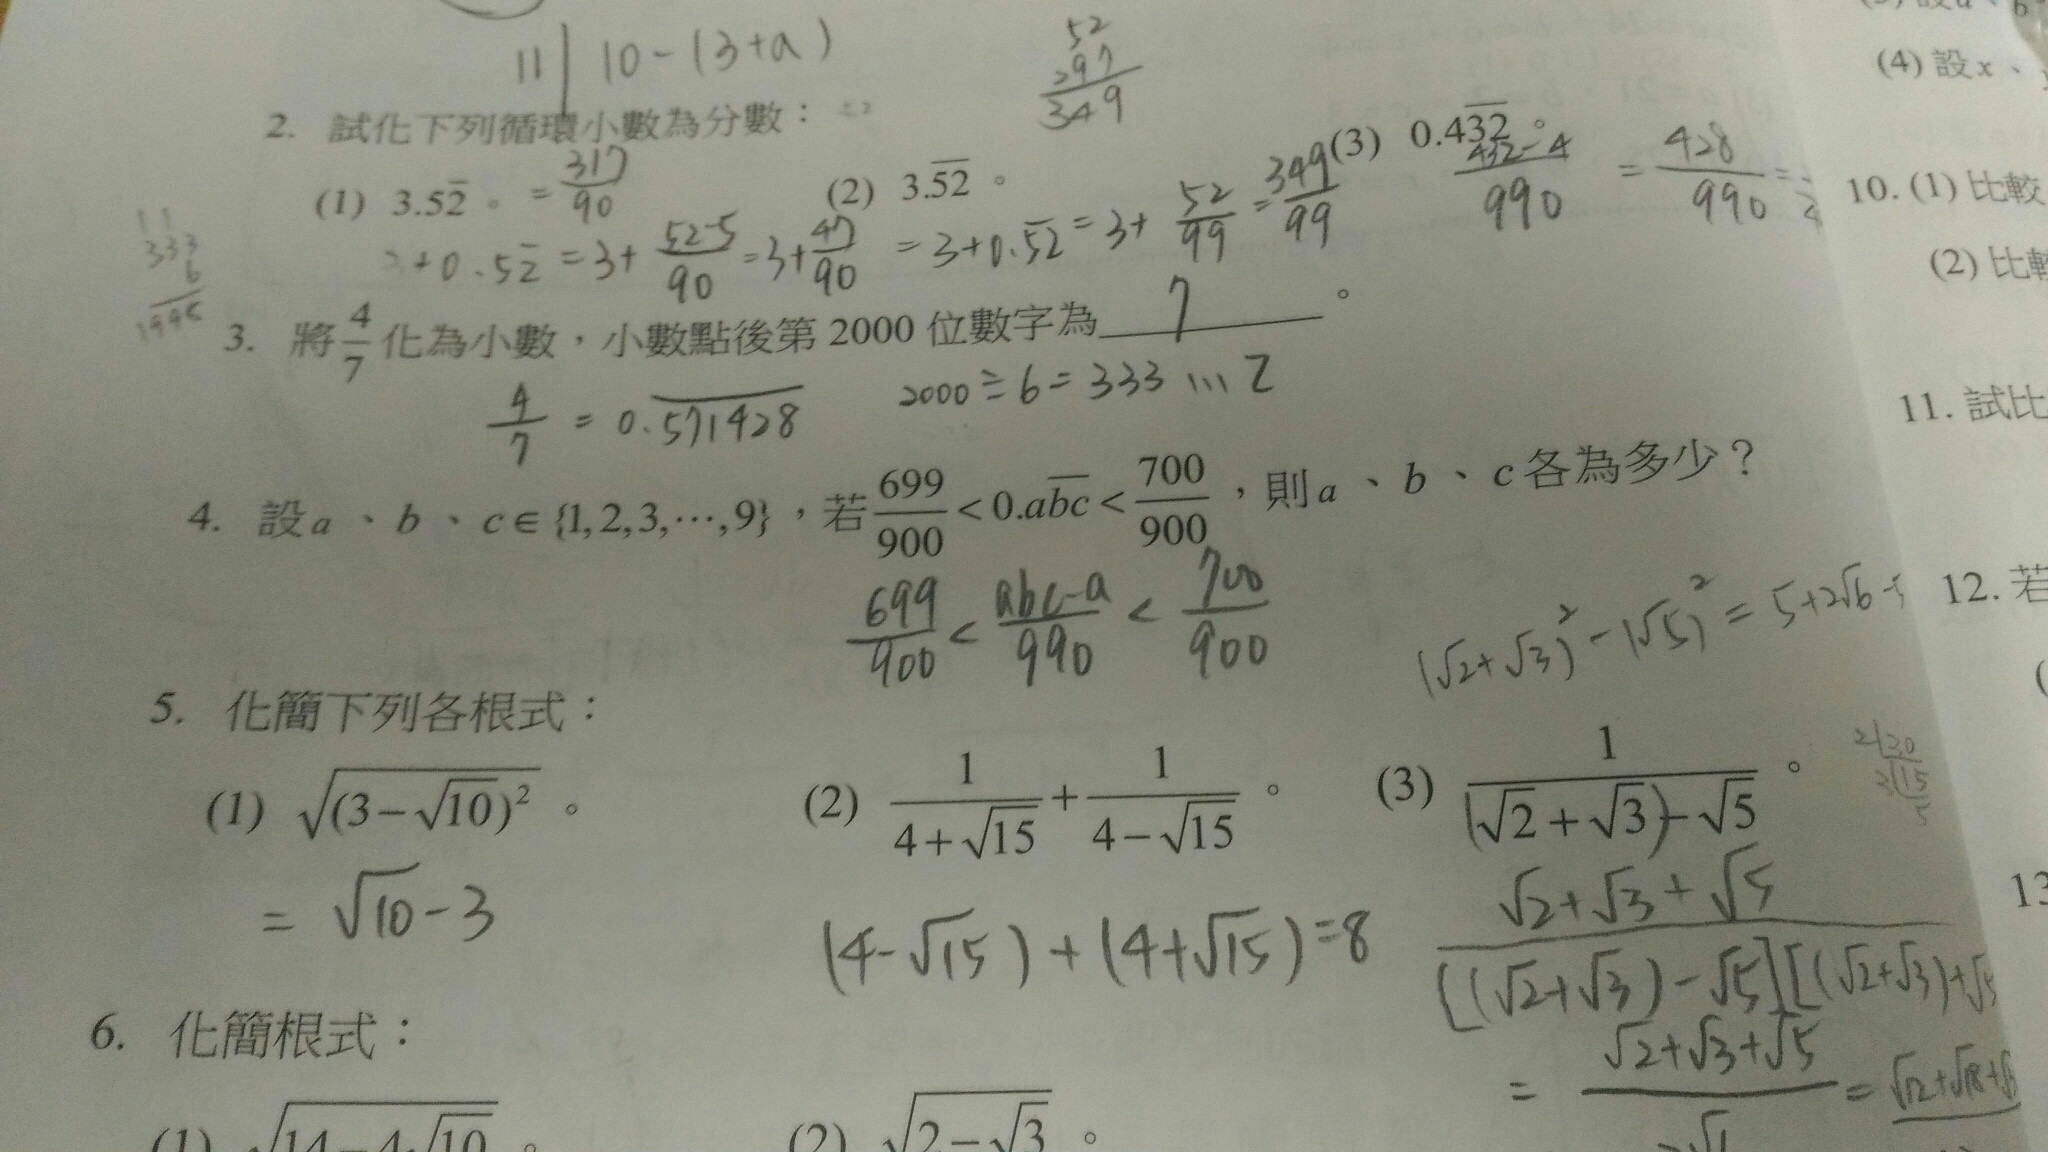 11 | 10-(3+a)
52
297
349
2. 試化下列循環小數為分數：
(1) 3.5\overline{2}。 = \frac{317}{90}
(2) 3.\overline{52}。
(3) 0.4\overline{32}。
3+0.5\overline{2} = 3+\frac{52-5}{90} = 3+\frac{47}{90}
= 3+0.\overline{52} = 3+\frac{52}{99} = \frac{349}{99}
\frac{432-4}{990} = \frac{428}{990} =
11
333
6
1998
3. 將\frac{4}{7}化為小數，小數點後第 2000 位數字為 7 。
\frac{4}{7} = 0.\overline{571428}
2000÷6=333…2
4. 設a、b、c∈{1,2,3,⋯,9}，若\frac{699}{900}<0.a\overline{bc}<\frac{700}{900}，則a、b、c各為多少？
\frac{699}{900} < \frac{abc-a}{990} < \frac{700}{900}
(√2+√3)²-(√5)² = 5+2√6-5
5. 化簡下列各根式：
(1) \sqrt{(3-\sqrt{10})^2}。
(2) \frac{1}{4+\sqrt{15}}+\frac{1}{4-\sqrt{15}}。
(3) \frac{1}{(\sqrt{2}+\sqrt{3})-\sqrt{5}}。
= √10-3
(4-√15)+(4+√15)=8
\frac{√2+√3+√5}{[(√2+√3)-√5][(√2+√3)+√5}
= \frac{√2+√3+√5}{} =
2|30
15
5
6. 化簡根式：
(1) \sqrt{14-4\sqrt{10}}。
(2) \sqrt{2-\sqrt{3}}。
(4) 設x、
10. (1) 比較
(2) 比較
11. 試比
12. 若
13